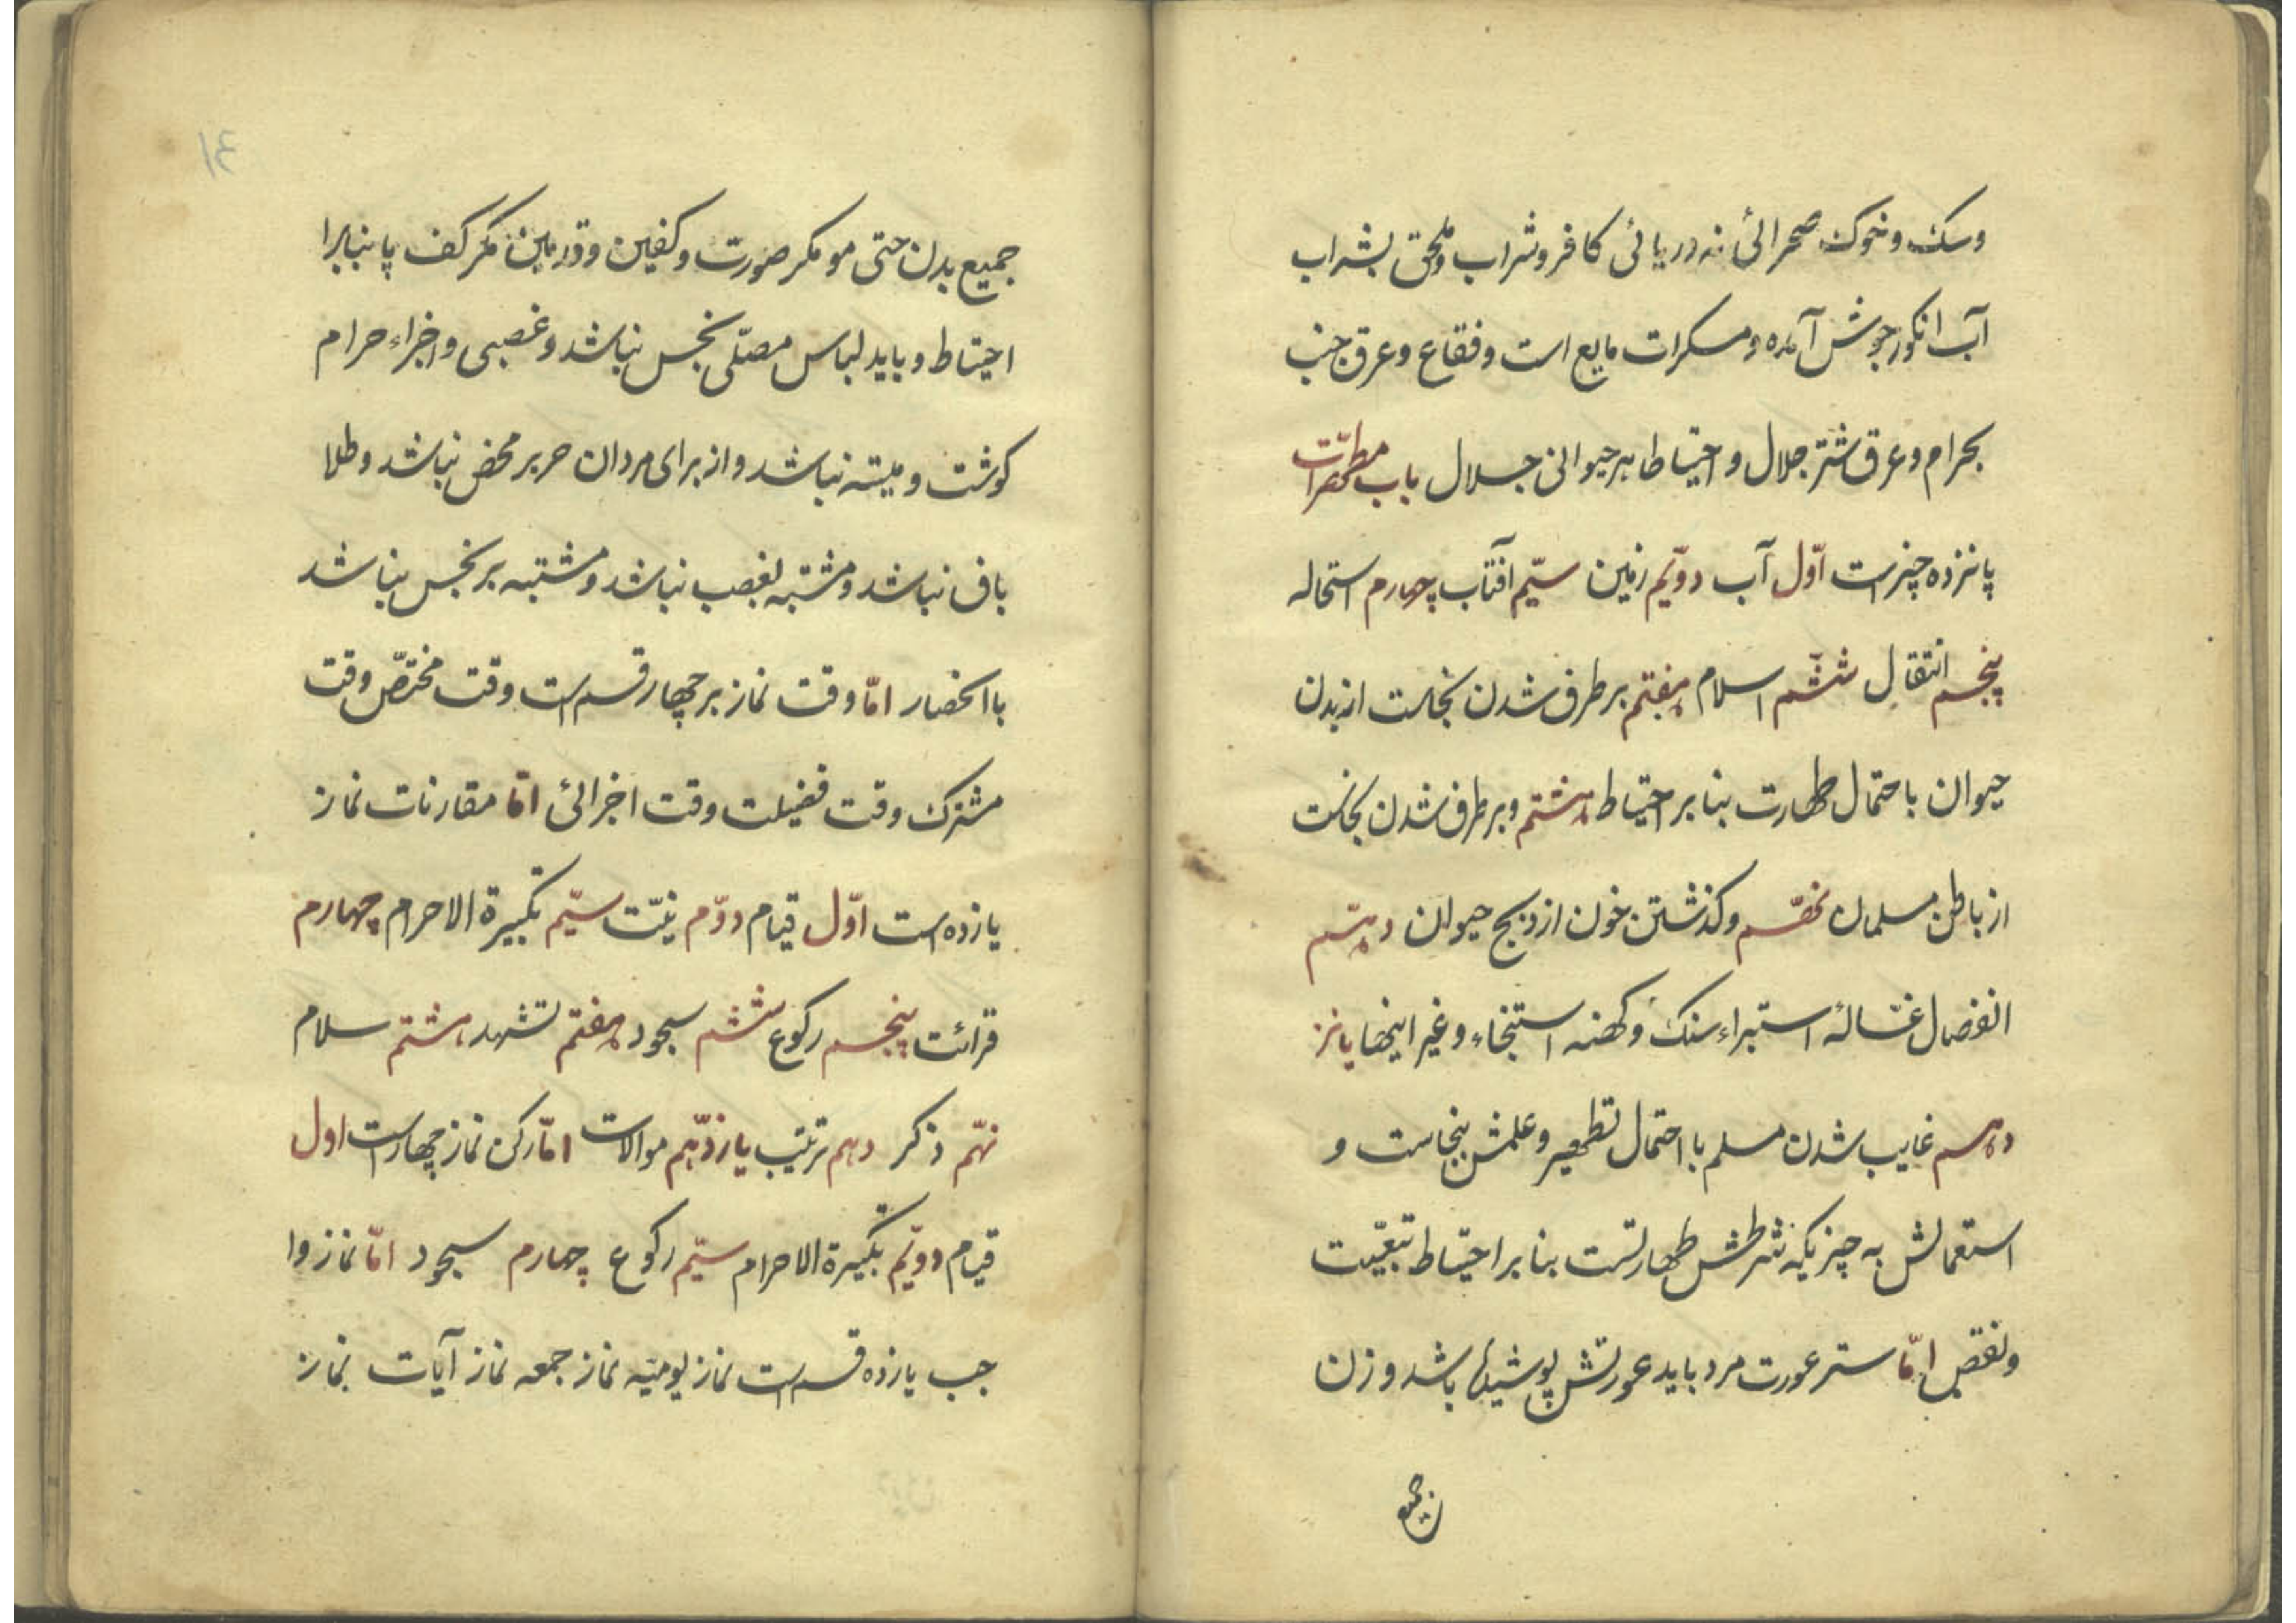 وسک و خوک صحرائی نه دریائی کافر و شراب و ملحق بشراب
آب انکور جوش آمده و مسکرات مایع است و فقاع و عرق جنب
بحرام و عرق شتر جلال و احتیاط هر حیوانی جلال باب مطهرات
پانزده چیزست اوّل آب دویّم زمین سیّم آفتاب چهارم استحاله
پنجم انتقال ششم اسلام هفتم برطرف شدن نجاست از بدن
حیوان با احتمال طهارت بنا بر احتیاط هشتم و برطرف شدن نجاست
از باطن مسلمان نهّم و کذشتن خون از ذبح حیوان دهّم
انفصال غسّاله استبراء سنک و کهنه استنجاء و غیر اینها پانز
دهم غایب شدن مسلم با احتمال تطهیر و علمش بنجاست و
استعمالش به چیزیکه شرطش طهارتست بنا بر احتیاط تبعیّت
و نقص امّا ستر عورت مرد باید عورتش پوشیده باشد و زن
جمیع
جمیع بدن حتی مو مکر صورت و کفین و قدمین مکر کف پا بنابرا
احتیاط و باید لباس مصلّی نجس نباشد و غصبی و اجزاء حرام
کوشت و میته نباشد و از برای مردان حریر محض نباشد و طلا
باف نباشد و مشتبه بغصب نباشد و مشتبه بر نجس نباشد
با انحصار امّا وقت نماز بر چهار قسم است وقت مختصّ وقت
مشترک وقت فضیلت وقت اجزائی امّا مقارنات نماز
یازده است اوّل قیام دوّم نیّت سیّم تکبیرة الاحرام چهارم
قرائت پنجم رکوع ششم سجود هفتم تشهد هشتم سلام
نهّم ذکر دهم ترتیب یازدّهم موالات امّا رکن نماز چهار است اول
قیام دویّم تکبیرة الاحرام سیّم رکوع چهارم سجود امّا نماز وا
جب یازده قسم است نماز یومیّه نماز جمعه نماز آیات نماز